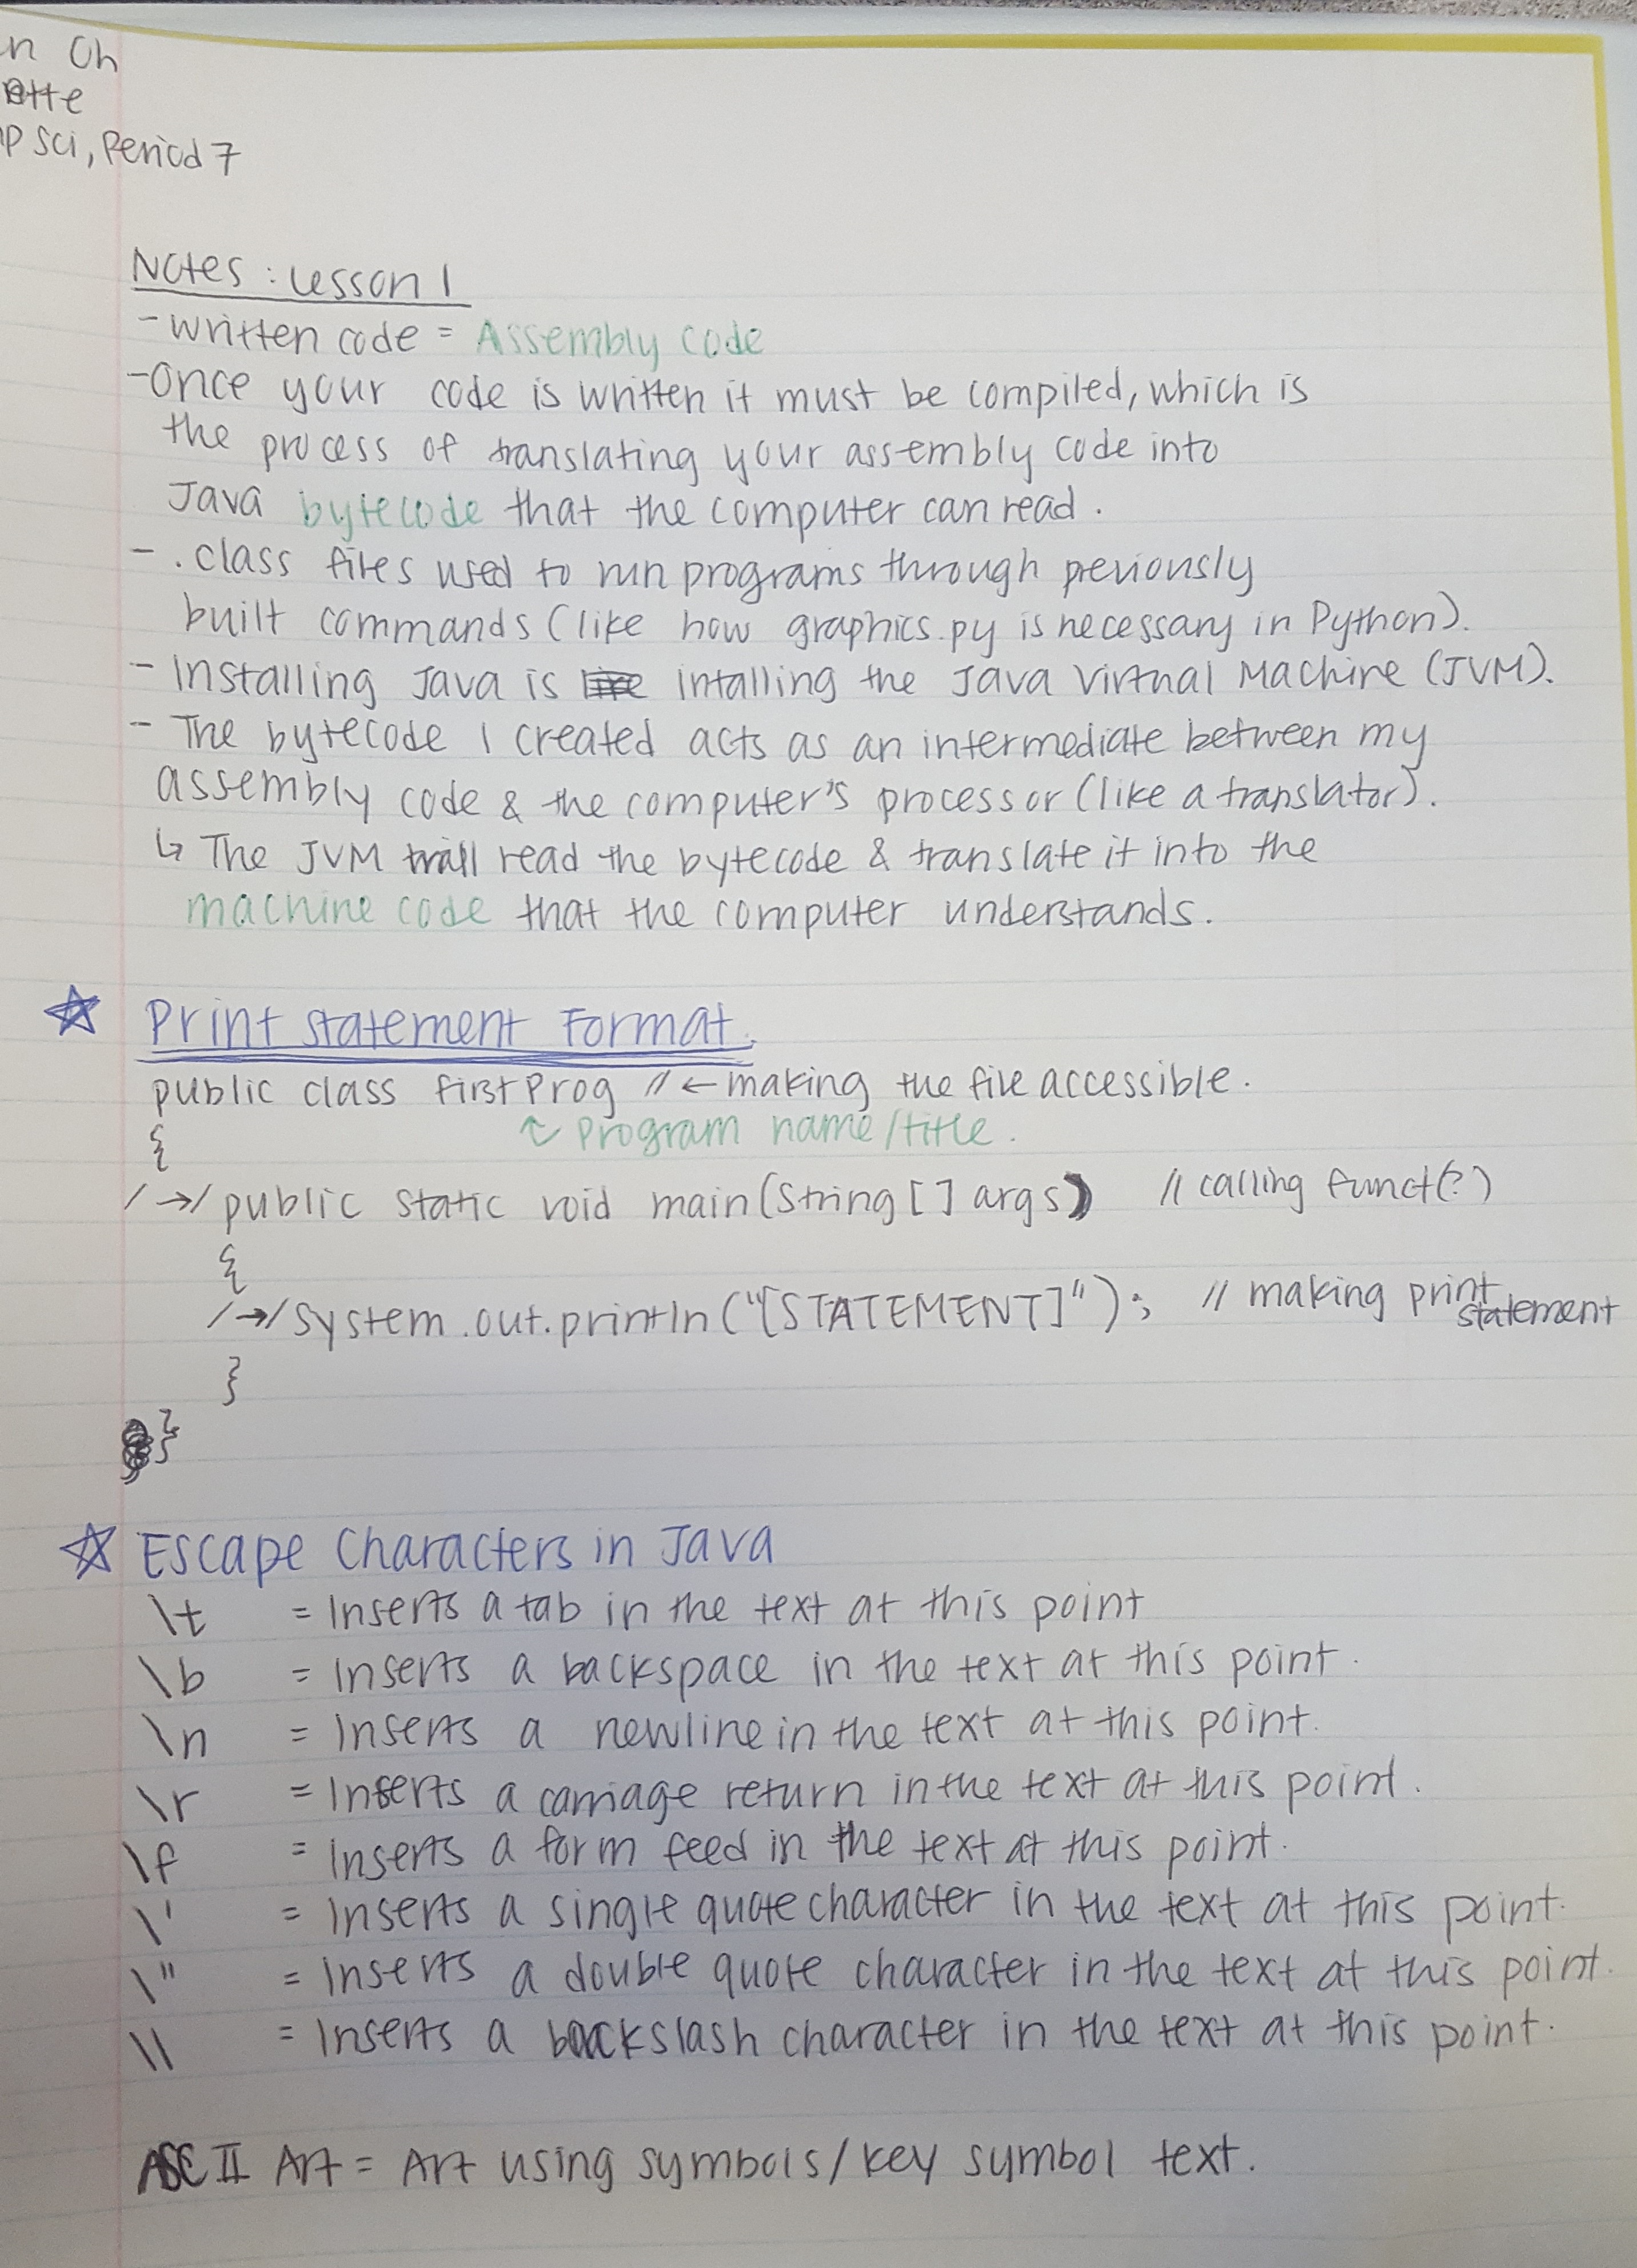 n Oh
ette
p Sci, Period 7
Notes: Lesson 1
- written code = Assembly code
- Once your code is written it must be compiled, which is
the process of translating your assembly code into
Java bytecode that the computer can read.
- .class files used to run programs through previously
built commands (like how graphics.py is necessary in Python).
- Installing Java is intalling the Java Virtual Machine (JVM).
- The bytecode I created acts as an intermediate between my
assembly code & the computer's processor (like a translator).
↳ The JVM will read the bytecode & translate it into the
machine code that the computer understands.
☆ Print Statement Format.
public class firstProg // ← making the file accessible.
{ ↖ Program name/title.
/→/ public static void main(String[] args) // calling funct(?)
{
/→/ System.out.println("[STATEMENT]"); // making print
statement
}
}
☆ Escape Characters in Java
\t = Inserts a tab in the text at this point
\b = Inserts a backspace in the text at this point.
\n = Inserts a newline in the text at this point.
\r = Inserts a carriage return in the text at this point.
\f = Inserts a form feed in the text at this point.
\' = Inserts a single quote character in the text at this point.
\" = Inserts a double quote character in the text at this point.
\\ = Inserts a backslash character in the text at this point.
ASCII Art = Art using symbols/key symbol text.